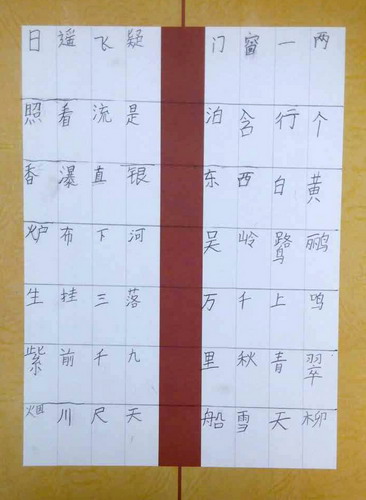 两个黄鹂鸣翠柳
一行白鹭上青天
窗含西岭千秋雪
门泊东吴万里船
日照香炉生紫烟
遥看瀑布挂前川
飞流直下三千尺
疑是银河落九天